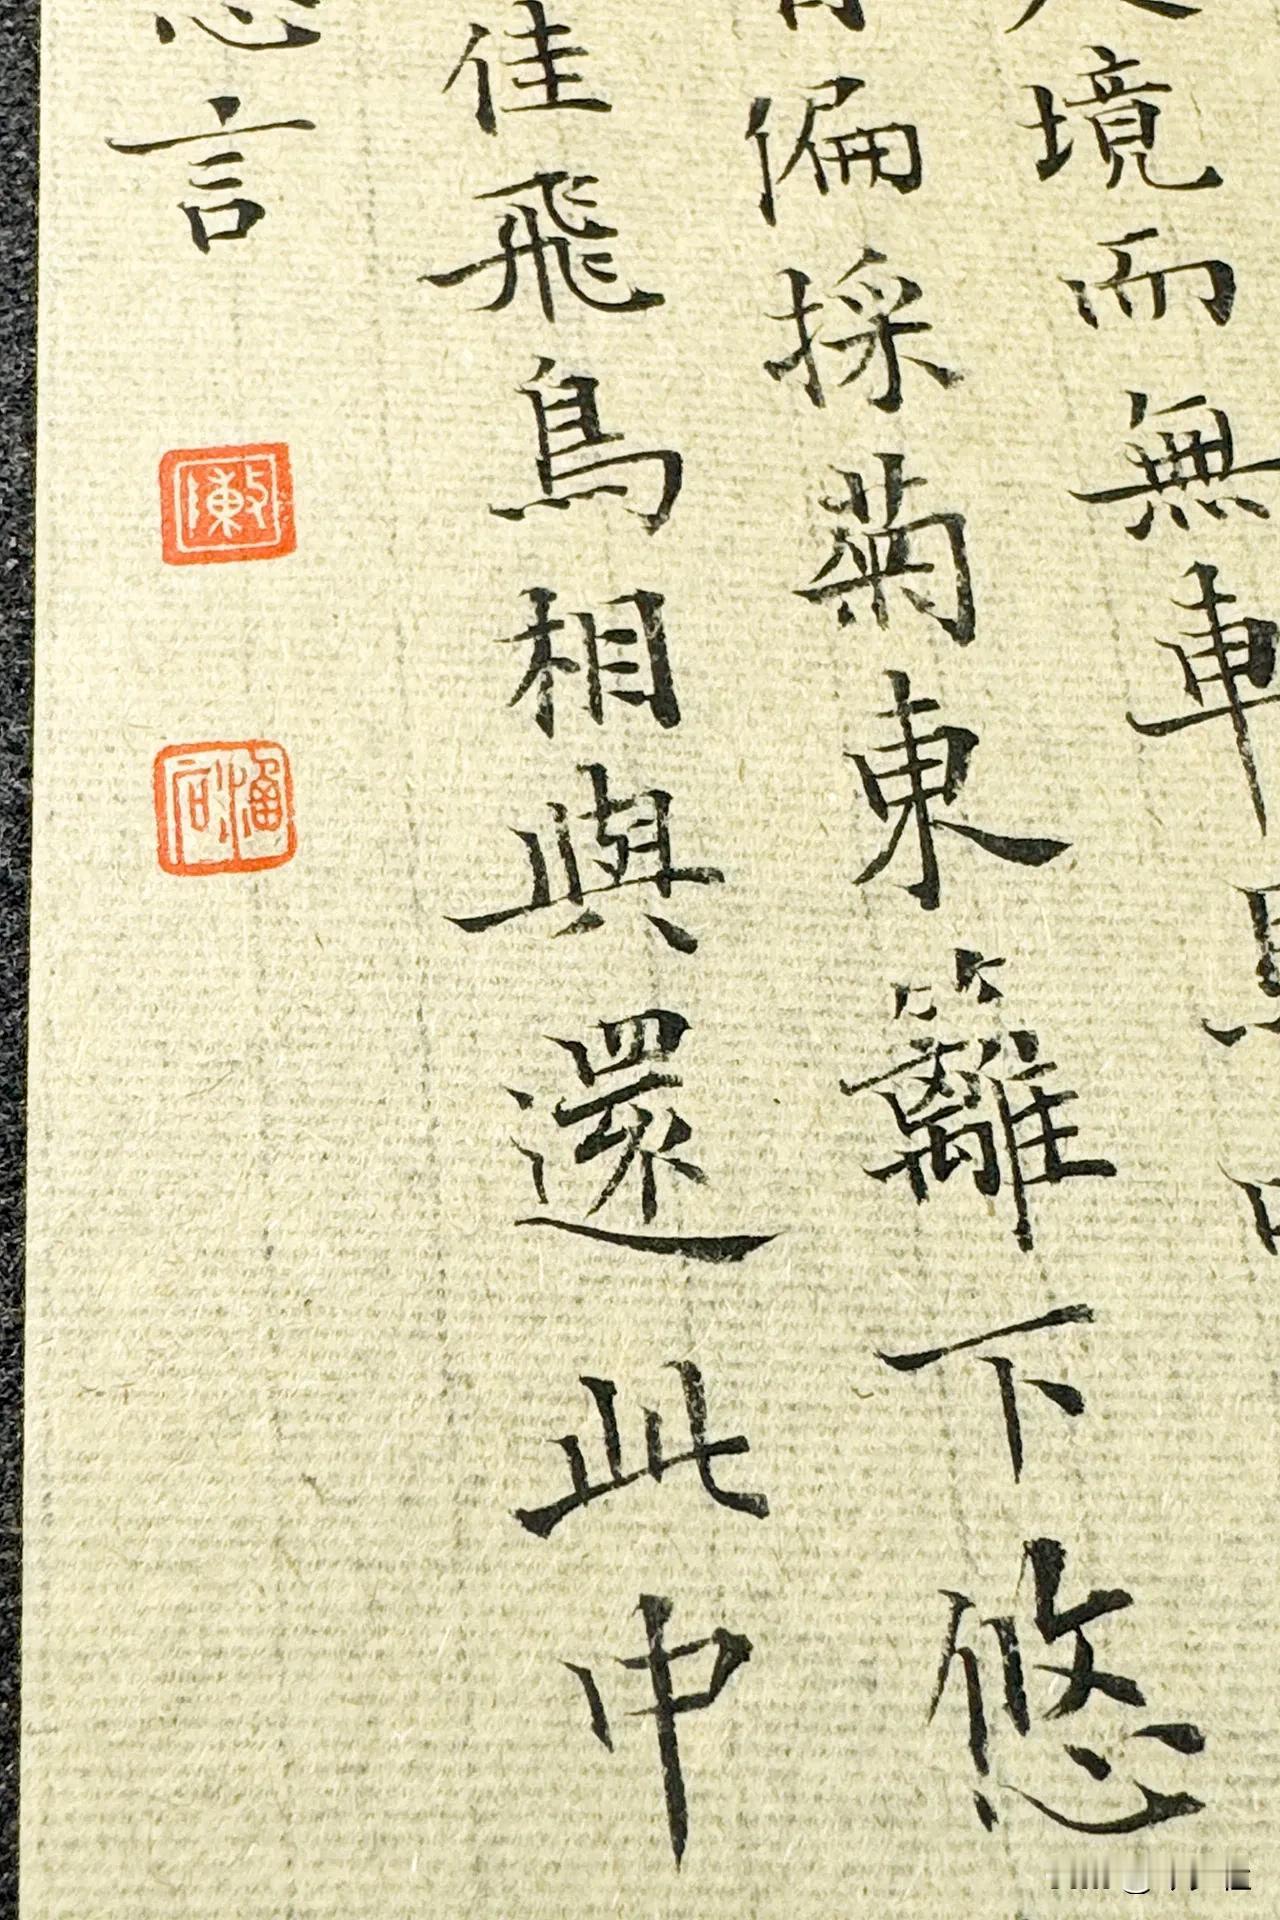 境而無車馬
偏採菊東籬下悠
佳飛鳥相與還此中
忘言